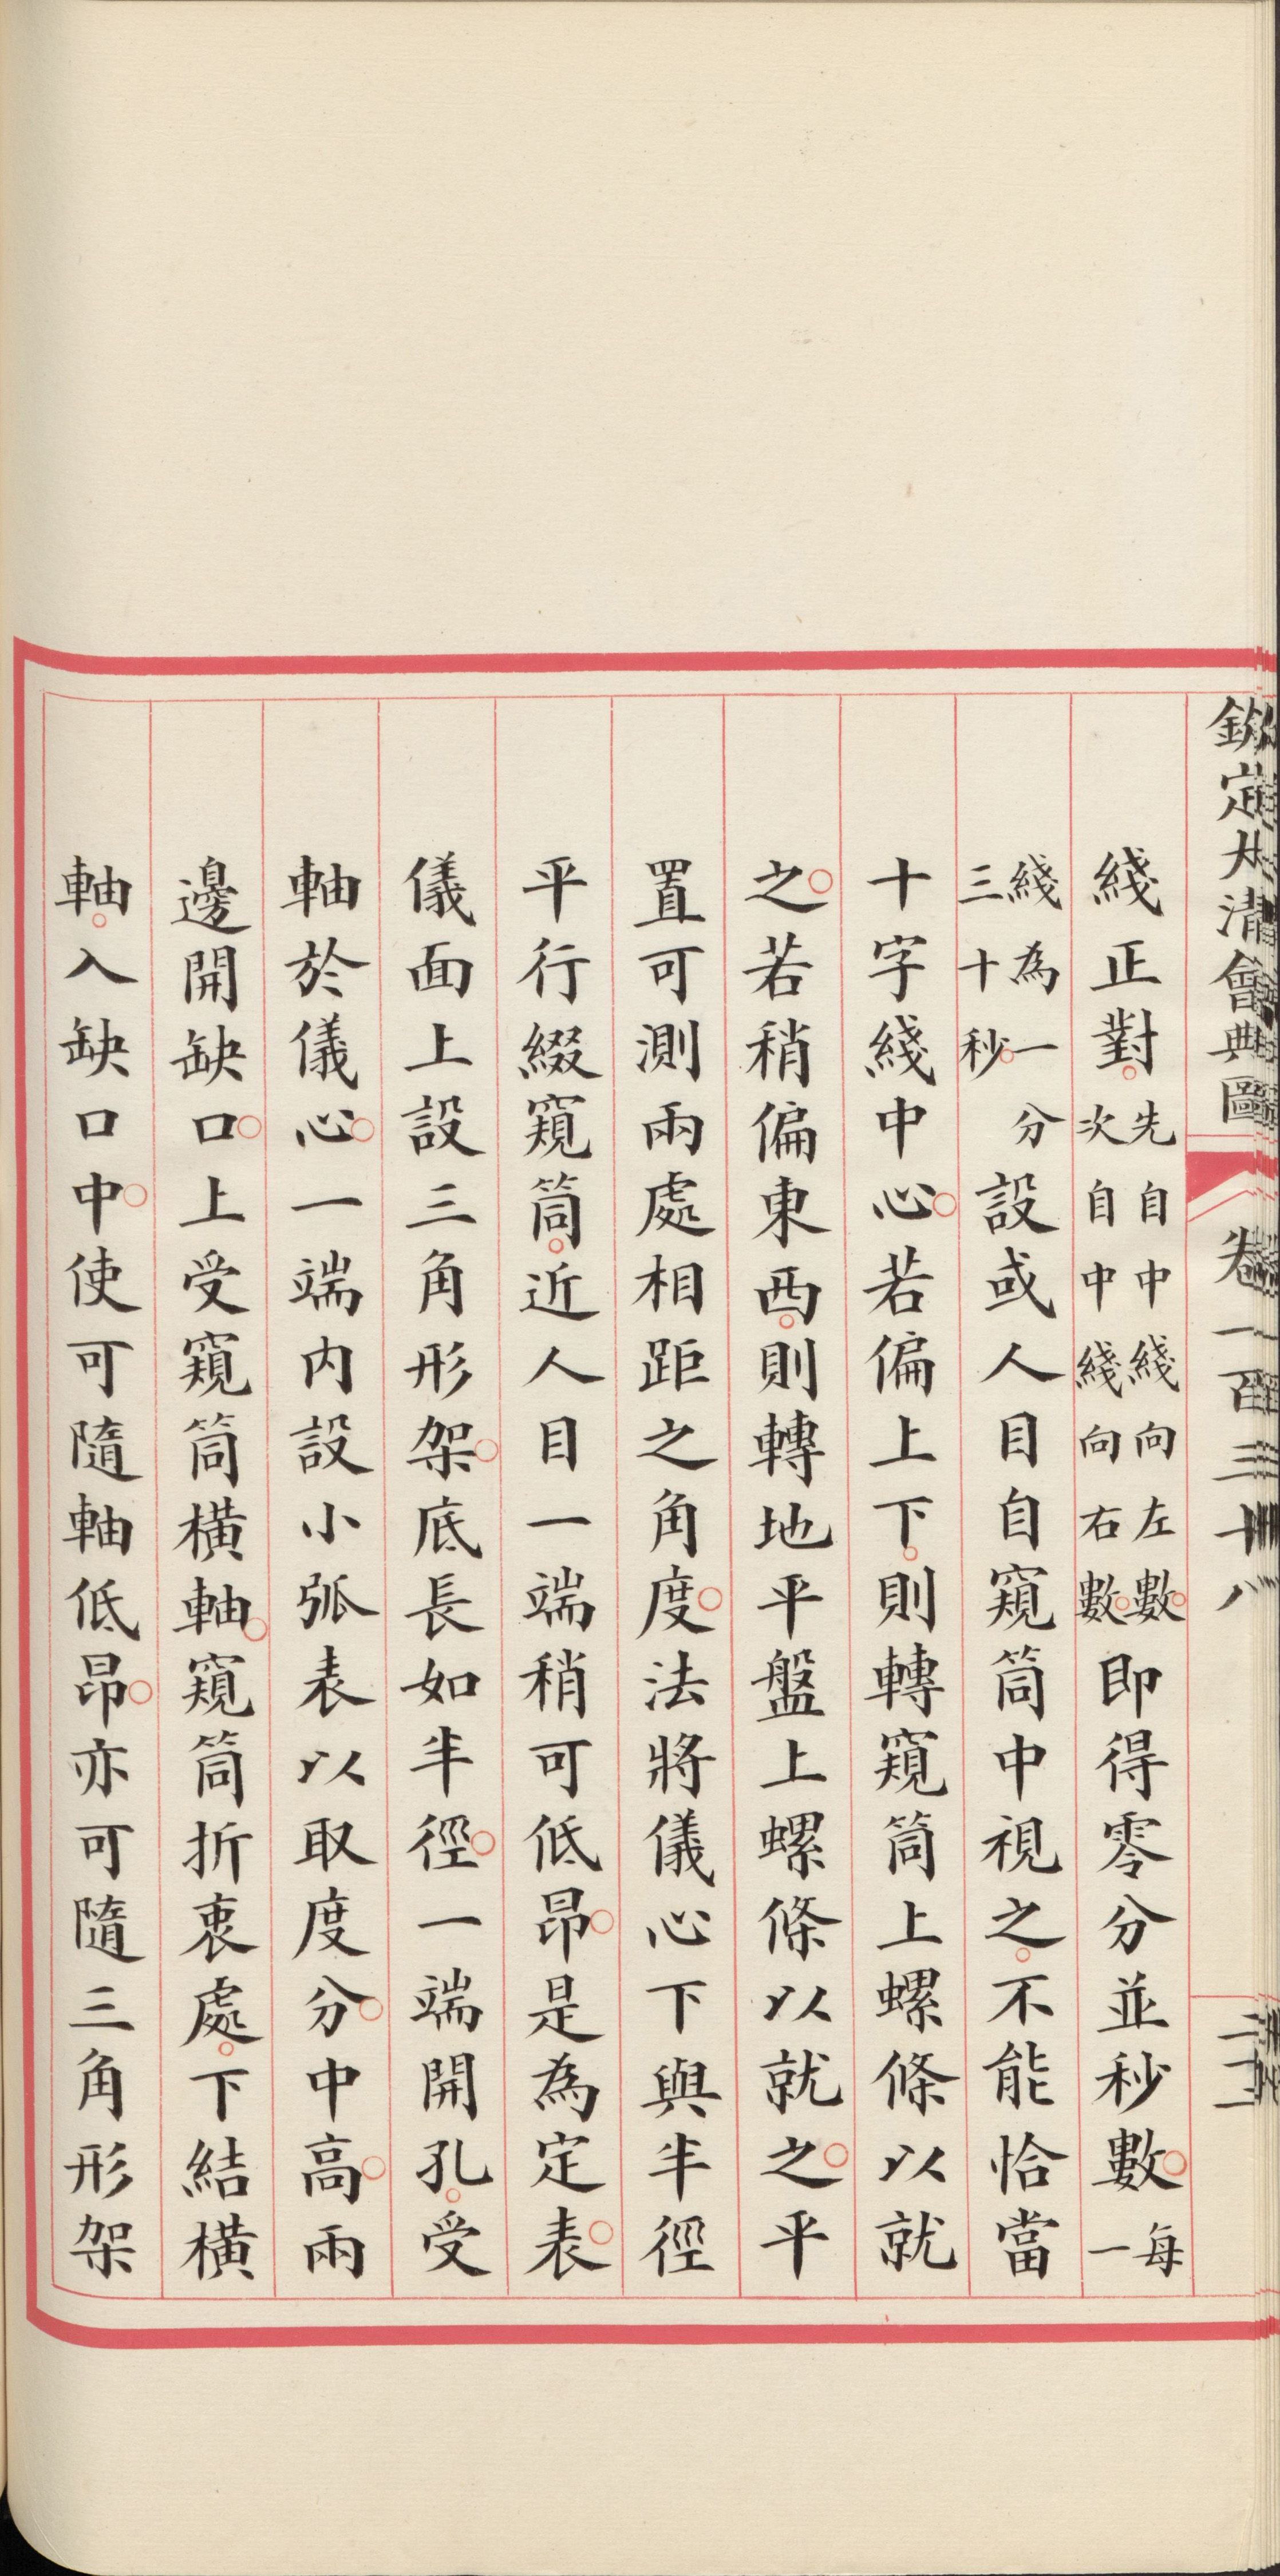 欽定大清會典圖 卷一百三十八
綫正對先自中綫向左數次自中綫向右數即得零分並秒數每一
綫為一分三十秒設或人目自窺筒中視之不能恰當
十字綫中心若偏上下則轉窺筒上螺條以就
之若稍偏東西則轉地平盤上螺條以就之平
置可測兩處相距之角度法將儀心下與半徑
平行綴窺筒近人目一端稍可低昂是為定表
儀面上設三角形架底長如半徑一端開孔受
軸於儀心一端內設小弧表以取度分中高兩
邊開缺口上受窺筒橫軸窺筒折衷處下結橫
軸入缺口中使可隨軸低昂亦可隨三角形架